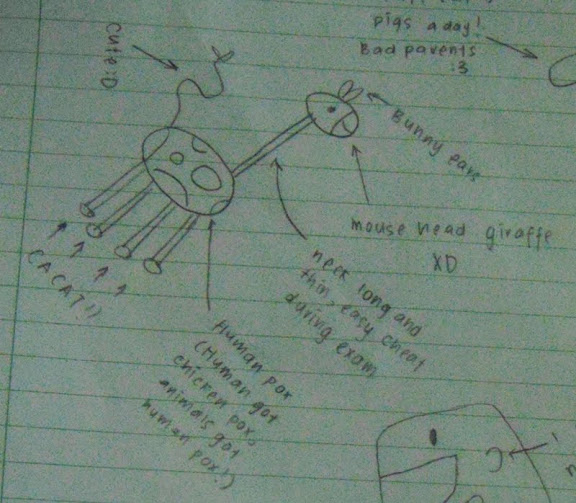 pigs a day!
Bad parents
:3
Cute :D
Bunny ears
mouse head giraffe
XD
neck long and
thin, easy cheat
during exam
(CACAT!)
Human pox
(Human got
chicken pox,
animals got
human pox!)